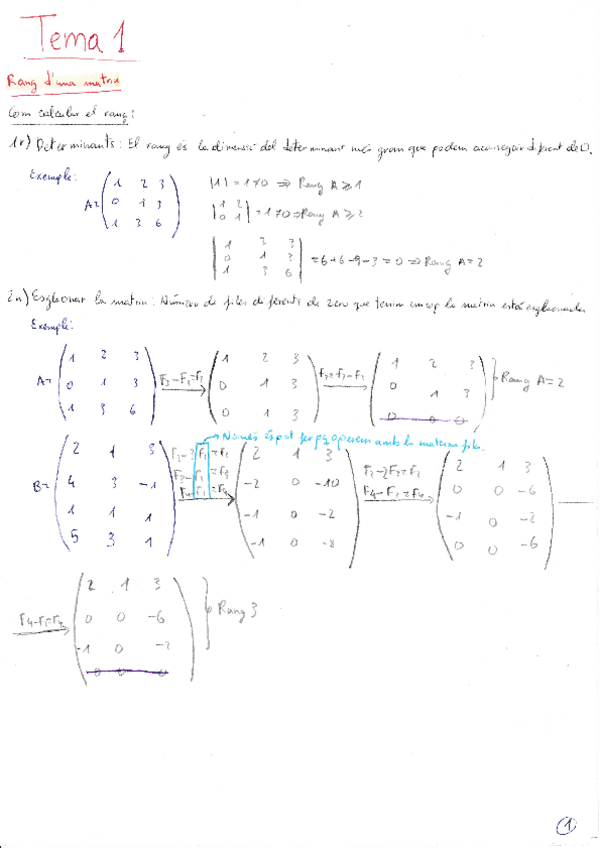 Tema 1
Rang d'una matriu
Com calcular el rang:
1r) Determinants: El rang és la dimensió del determinant més gran que podem aconseguir diferent de 0.
Exemple:
A= (1 2 3
0 1 3
1 3 6)
|1| = 1≠0 ⇒ Rang A ≥ 1
|1 2
0 1| = 1≠0 ⇒ Rang A ≥ 2
|1 2 3
0 1 3
1 3 6| = 6+6-9-3=0 ⇒ Rang A = 2
2n) Esglaonar la matriu: Número de files diferents de zero que tenim un cop la matriu està esglaonada
Exemple:
A= (1 2 3
0 1 3
1 3 6)
F3-F1=F3
(1 2 3
0 1 3
0 1 3)
F3=F3-F2
(1 2 3
0 1 3
0 0 0) Rang A=2
Només es pot fer pq operem amb la mateixa fila.
B= (2 1 3
4 3 -1
1 1 1
5 3 1)
F2-3F1=F2
F3-F1=F3
(2 1 3
-2 0 -10
-1 0 -2
-1 0 -8)
F2-2F3=F2
F4-F3=F4
(2 1 3
0 0 -6
-1 0 -2
0 0 -6)
(2 1 3
0 0 -6
-1 0 -2
0 0 0) Rang 3
1